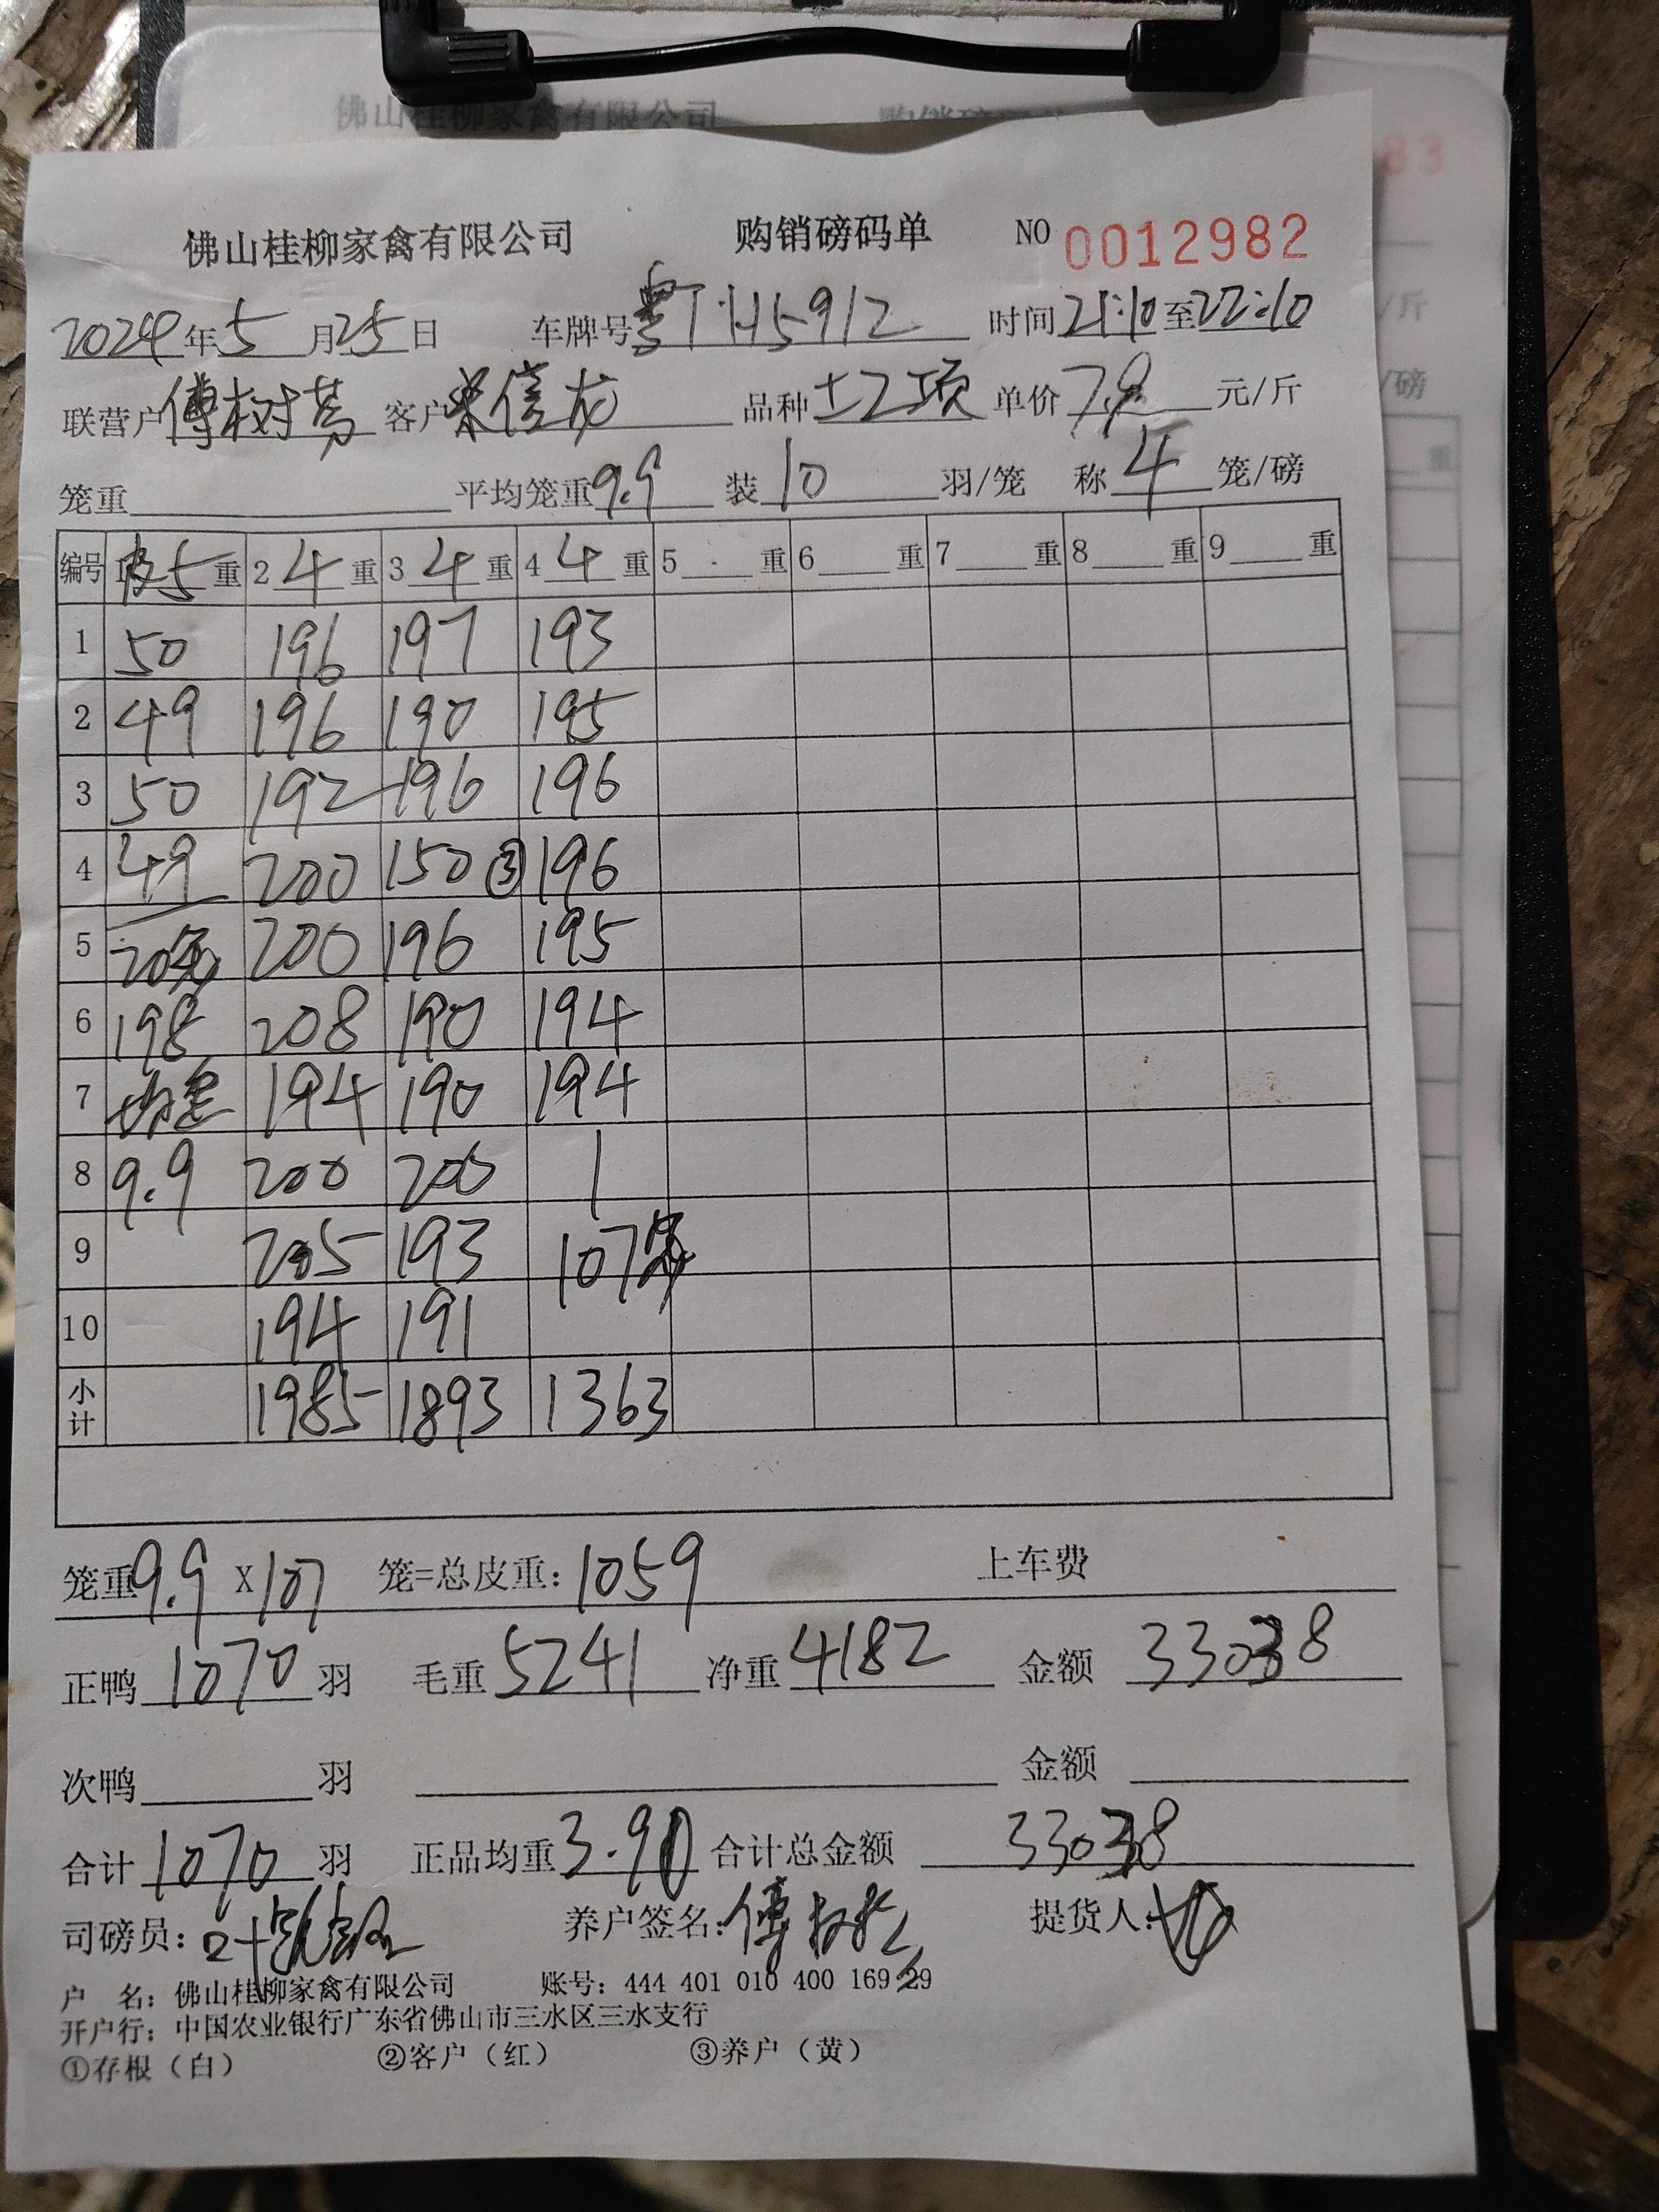 佛山桂柳家禽有限公司 购销磅码单
83
佛山桂柳家禽有限公司 购销磅码单 NO 0012982
2024年5月25日 车牌号粤TH5912 时间21:10至22:10
联营户傅树 客户信龙 品种土2项 单价7.9元/斤
笼重 平均笼重9.9 装10羽/笼 称4笼/磅
编号 1皮5重 2 4重 3 4重 4 4重 5重 6重 7重 8重 9重
1 50 196 197 193
2 49 196 190 195
3 50 192 196 196
4 49 200 150③ 196
5 20笼 200 196 195
6 198 208 190 194
7 均重 194 190 194
8 9.9 200 200 1
9 205 193 107笼
10 194 191
小计 1985 1893 1363
笼重9.9X107笼=总皮重:1059 上车费
正鸭1070羽 毛重5241 净重4182 金额33038
次鸭羽 金额
合计1070羽 正品均重3.90 合计总金额33038
司磅员:叶 养户签名:傅树 提货人:
户 名:佛山桂柳家禽有限公司 账号:444 401 010 400 169 29
开户行:中国农业银行广东省佛山市三水区三水支行
①存根(白) ②客户(红) ③养户(黄)
/斤
/磅
重